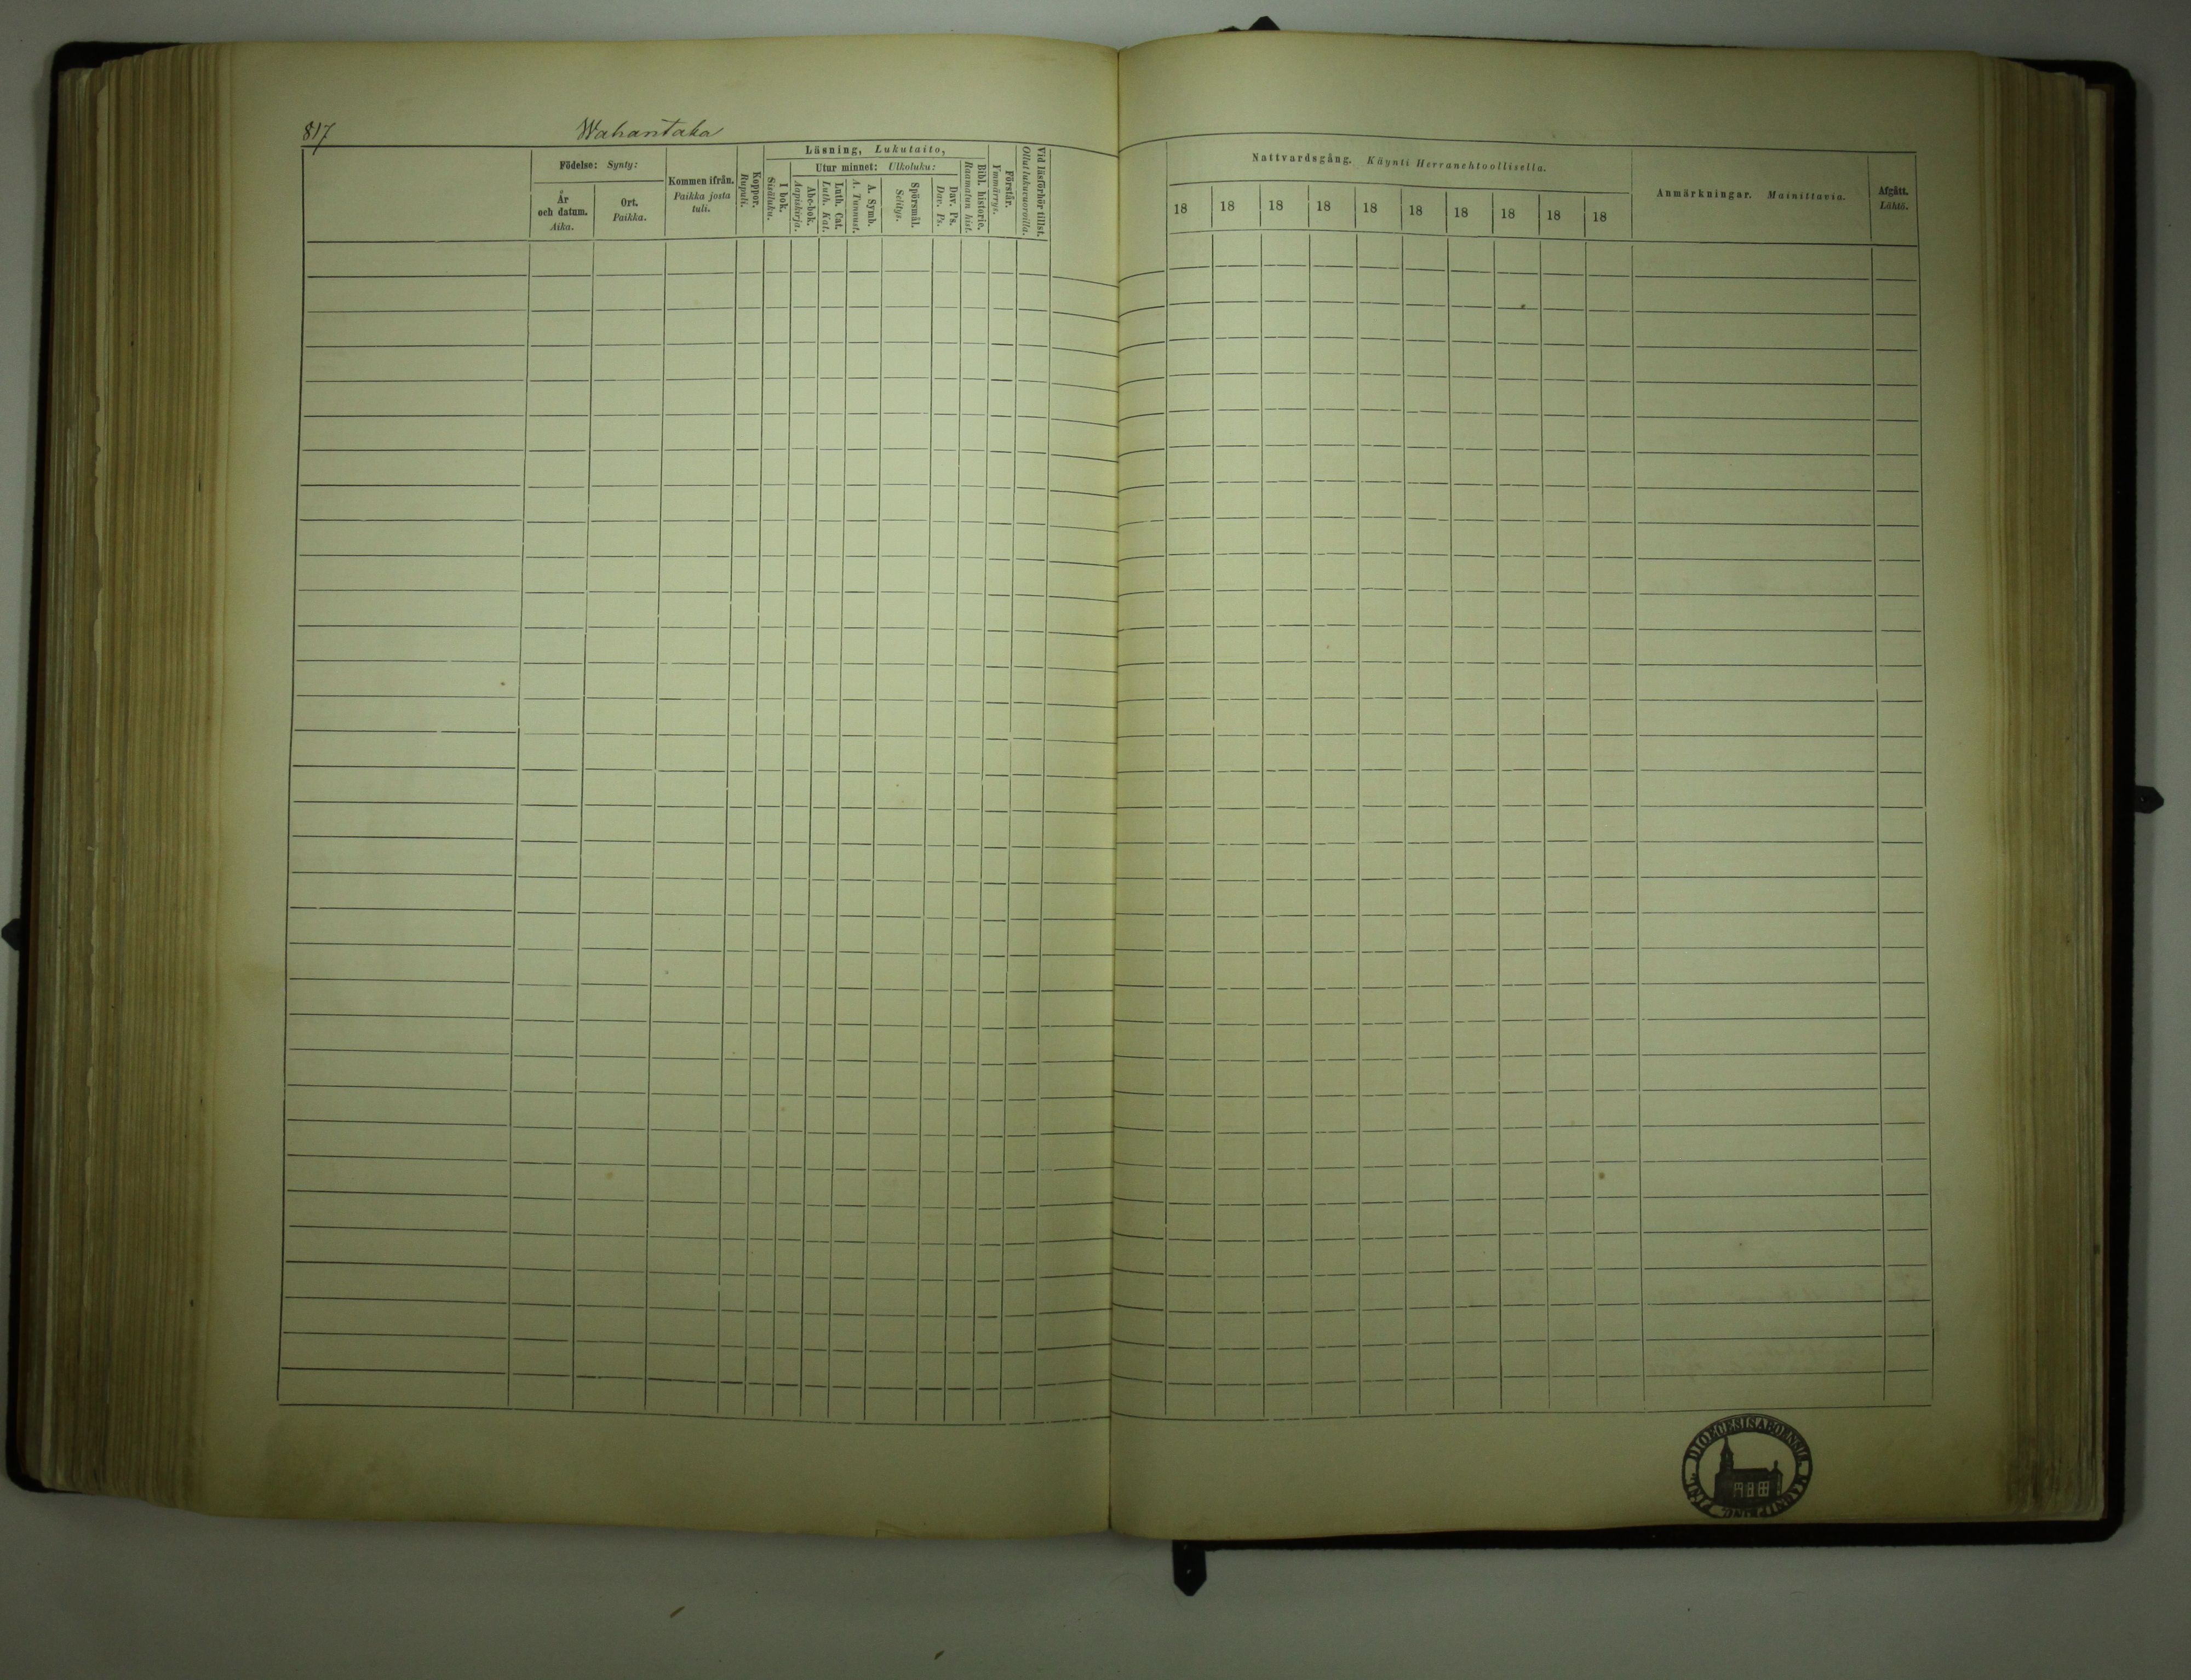 817
Wahantaka
Födelse: Synty:
År och datum. Aika.
Ort. Paikka.
Kommen ifrån. Paikka josta tuli.
Koppor. Rupuli.
Läsning, Lukutaito,
I bok. Sisäluku.
Utur minnet: Ulkoluku:
Abc-bok. Aapiskirja.
Luth. Cat. Luth. Kat.
A. Symb. A. Tunnust.
Spörsmål. Selitys.
Dav. Ps. Dav. Ps.
Bibl. historie. Raamatun hist.
Förstår. Ymmärrys.
Vid läsförhör tillst. Ollut lukuvuoroilla.
Nattvardsgång. Käynti Herranehtoollisella.
18 18 18 18 18 18 18 18 18 18
Anmärkningar. Mainittavia.
Afgått. Lähtö.
DIOECESIS ABOENSIS. MAGNI PRINC. FINL.